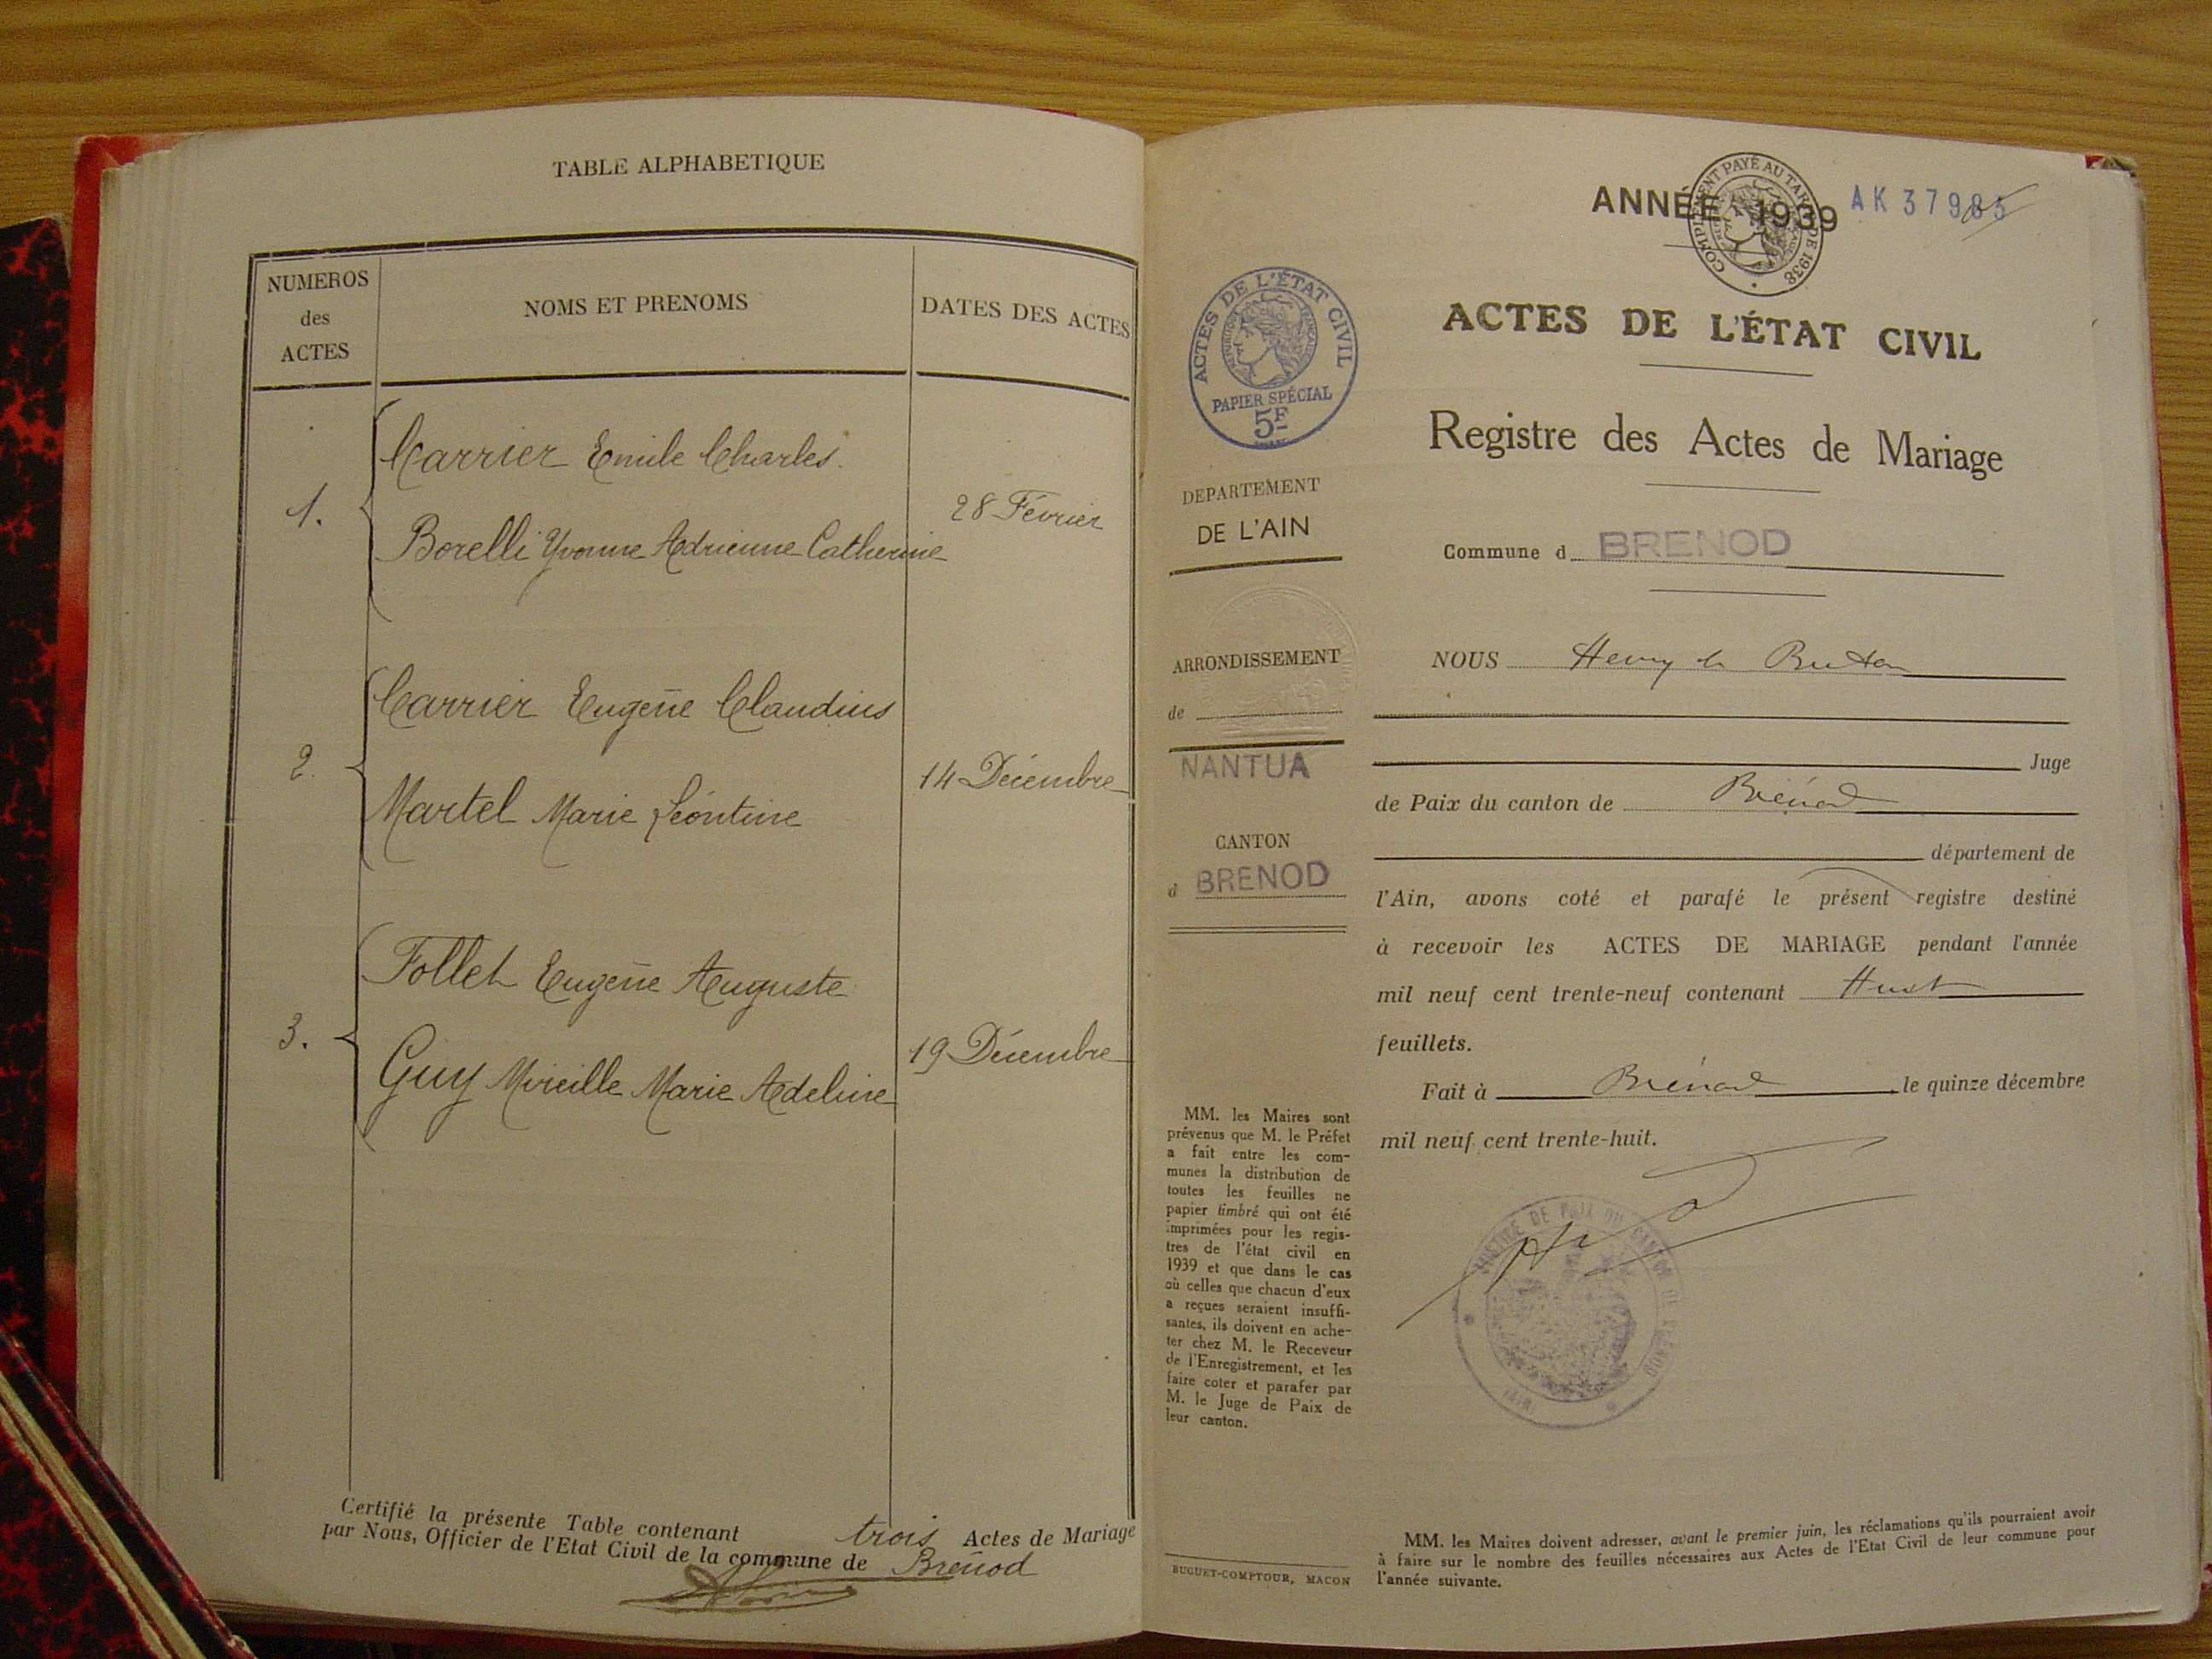 TABLE ALPHABETIQUE
NUMEROS
des
ACTES
NOMS ET PRENOMS
DATES DES ACTES
1.
Carrier Emile Charles.
Borelli Yvonne Adrienne Catherine
28 Février
2.
Carrier Eugène Claudius
Martel Marie Léontine
14 Décembre
3.
Follet Eugène Auguste
Guy Mireille Marie Adeline
19 Décembre
Certifié la présente Table contenant trois Actes de Mariage
par Nous, Officier de l'Etat Civil de la commune de Brénod
ANNÉE 1939
COMPLEMENT PAYÉ AU TARIF DE 1938
AK 37985
ACTES DE L'ÉTAT CIVIL
RÉPUBLIQUE FRANÇAISE
PAPIER SPÉCIAL
5F
DEPARTEMENT
DE L'AIN
ARRONDISSEMENT
de
NANTUA
CANTON
d BRENOD
MM. les Maires sont
prévenus que M. le Préfet
a fait entre les com-
munes la distribution de
toutes les feuilles ne
papier timbré qui ont été
imprimées pour les regis-
tres de l'état civil en
1939 et que dans le cas
où celles que chacun d'eux
a reçues seraient insuffi-
santes, ils doivent en ache-
ter chez M. le Receveur
de l'Enregistrement, et les
faire coter et parafer par
M. le Juge de Paix de
leur canton.
BUGUET-COMPTOUR, MACON
ACTES DE L'ÉTAT CIVIL
Registre des Actes de Mariage
Commune d BRENOD
NOUS Henry
Juge
de Paix du canton de Brénod
département de
l'Ain, avons coté et parafé le présent registre destiné
à recevoir les ACTES DE MARIAGE pendant l'année
mil neuf cent trente-neuf contenant Huit
feuillets.
Fait à Brénod le quinze décembre
mil neuf cent trente-huit.
JUSTICE DE PAIX DU CANTON DE BRENOD
(AIN)
MM. les Maires doivent adresser, avant le premier juin, les réclamations qu'ils pourraient avoir
à faire sur le nombre des feuilles nécessaires aux Actes de l'Etat Civil de leur commune pour
l'année suivante.